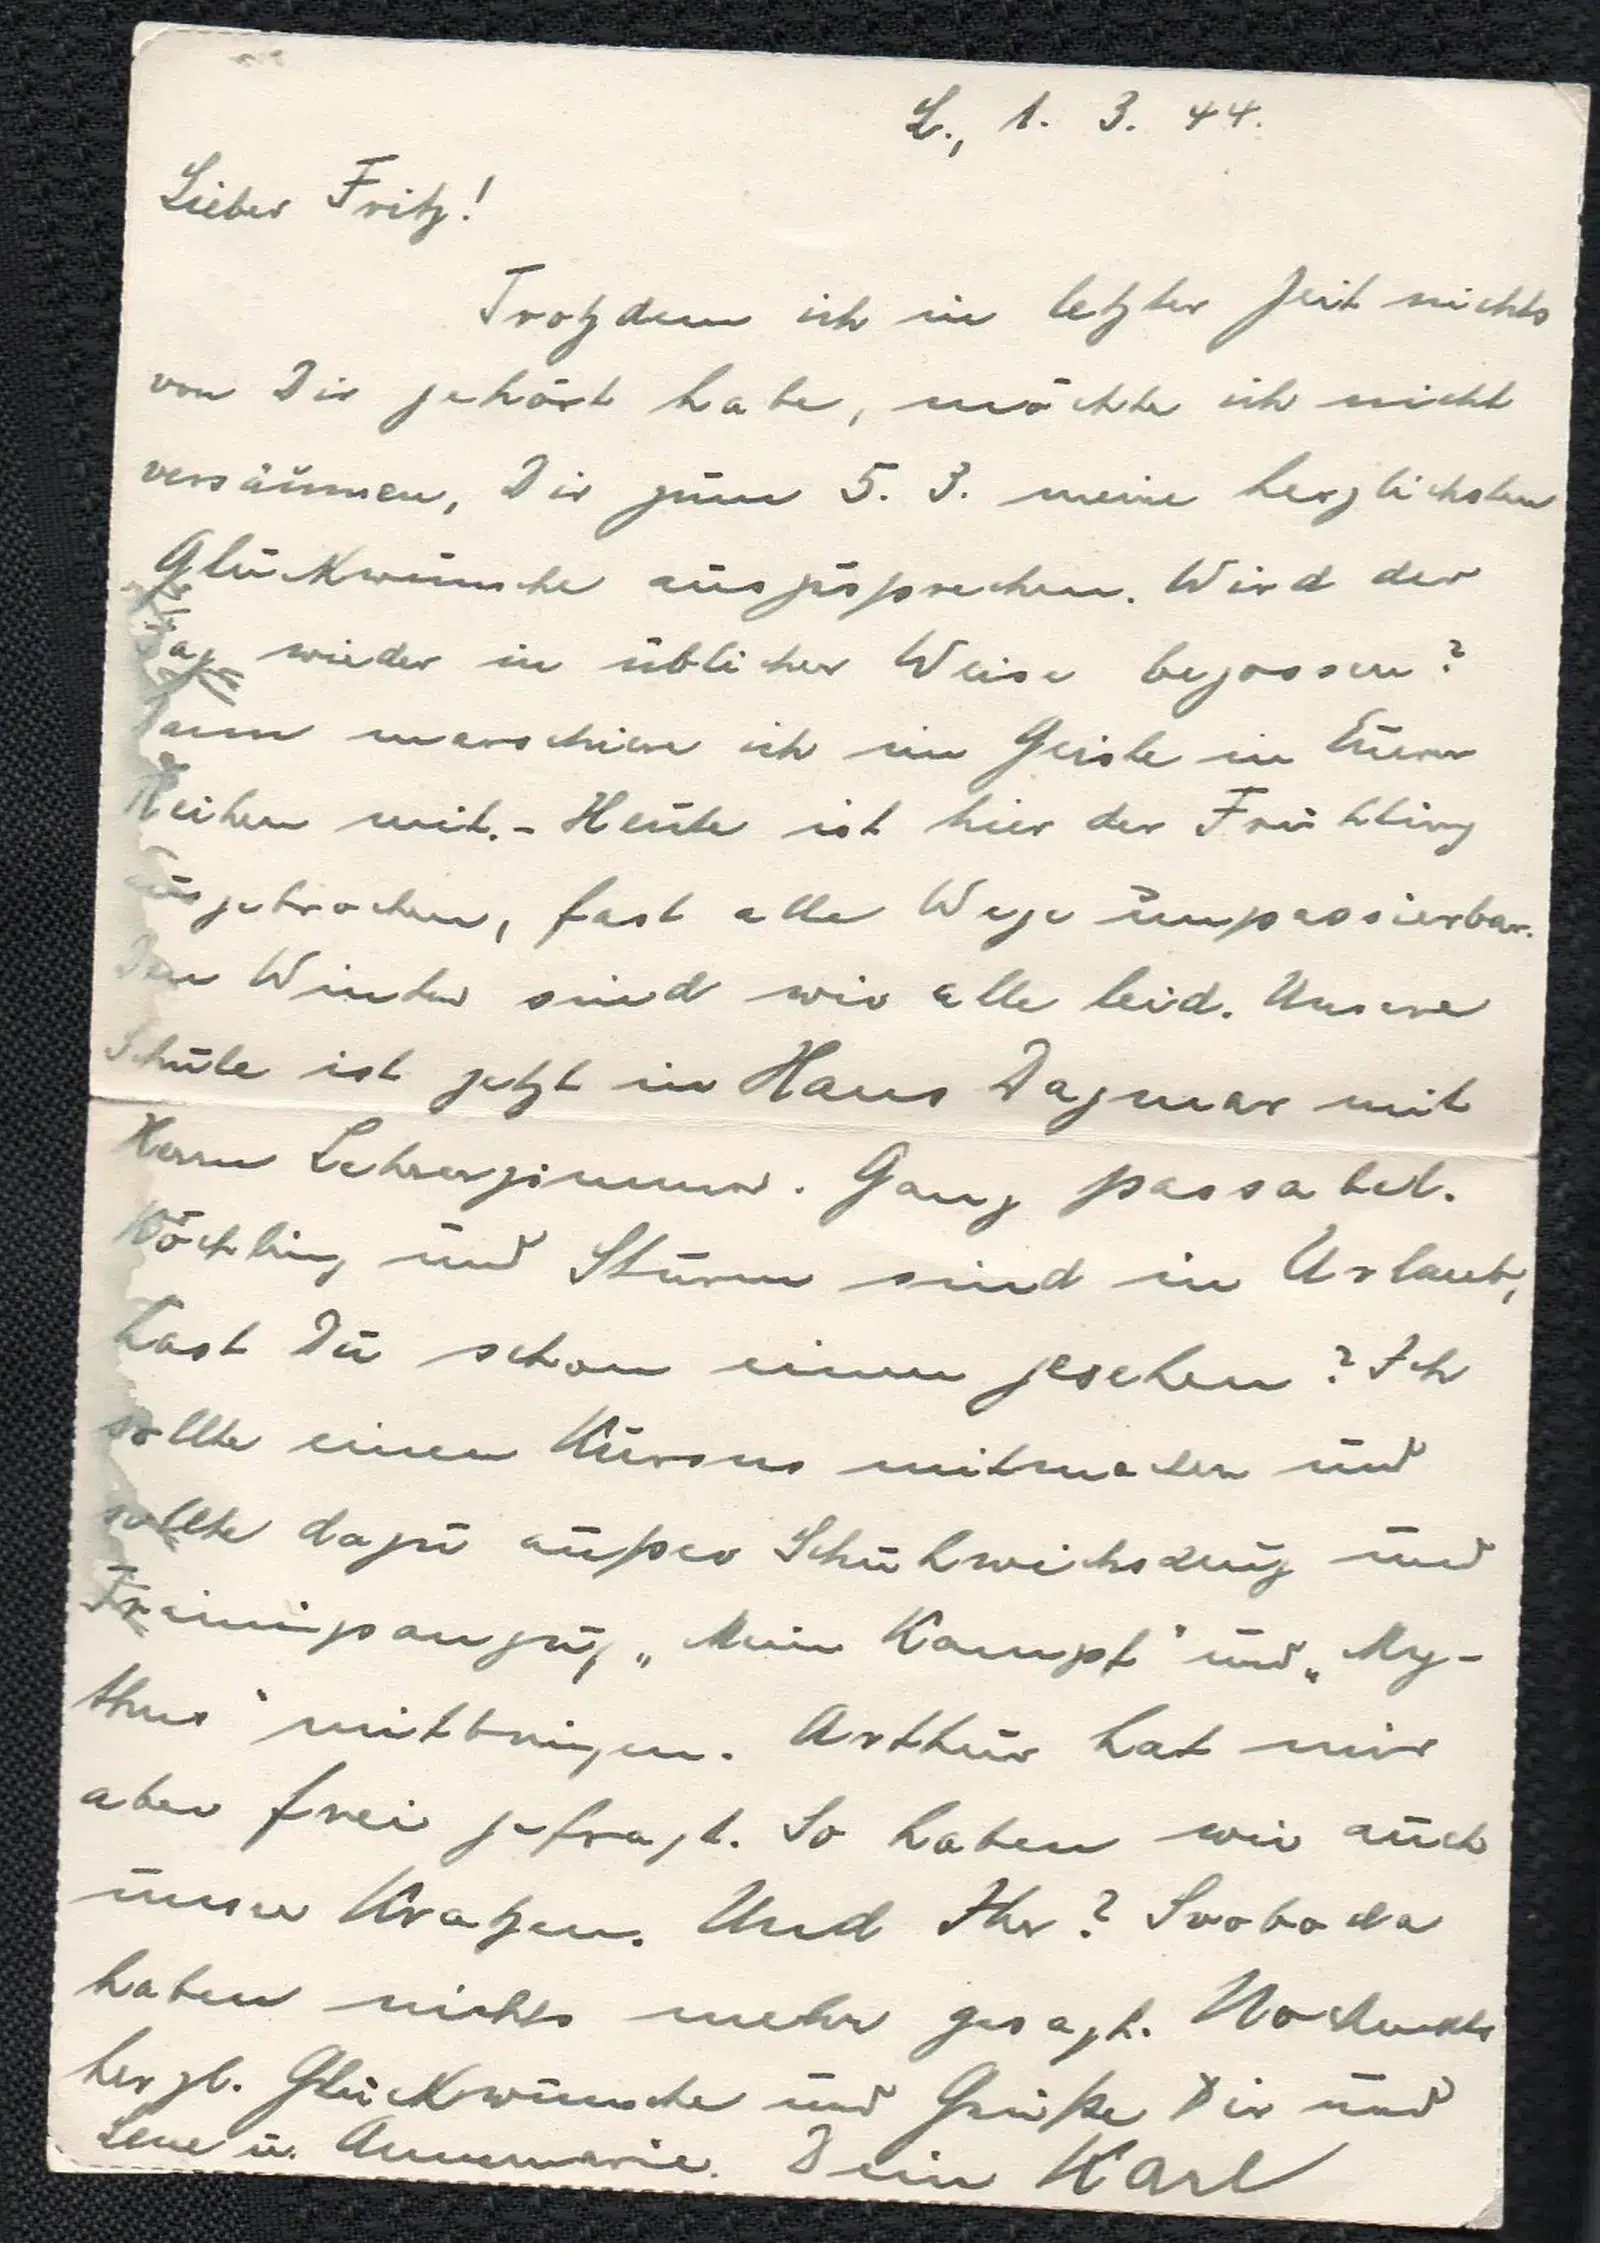 L., 1. 3. 44.
Lieber Fritz!
Trotzdem ich in letzter Zeit nichts
von Dir gehört habe, möchte ich nicht
versäumen, Dir zum 5. 3. meine herzlichsten
Glückwünsche auszusprechen. Wird der
Tag wieder in üblicher Weise begossen?
Dann marschiere ich im Geiste in Euren
Reihen mit. - Heute ist hier der Frühling
ausgebrochen, fast alle Wege unpassierbar.
Den Winter sind wir alle leid. Unsere
Schule ist jetzt in Haus Dagmar mit
Herrn Lehrerzimmer. Ganz passabel.
und Sturm sind in Urlaub,
hast Du schon einen gesehen? Ich
sollte einen Kursus mitmachen und
sollte dazu außer Schuhwichszeug und
Trainingsanzug „Mein Kampf" und „My-
thus" mitbringen. Arthur hat mir
aber frei gefragt. So haben wir auch
unser Kratzen. Und Ihr? Svoboda
haben nichts mehr gesagt. Nochmals
herzl. Glückwünsche und Grüße Dir und
Lene u. Annemarie. Dein Karl